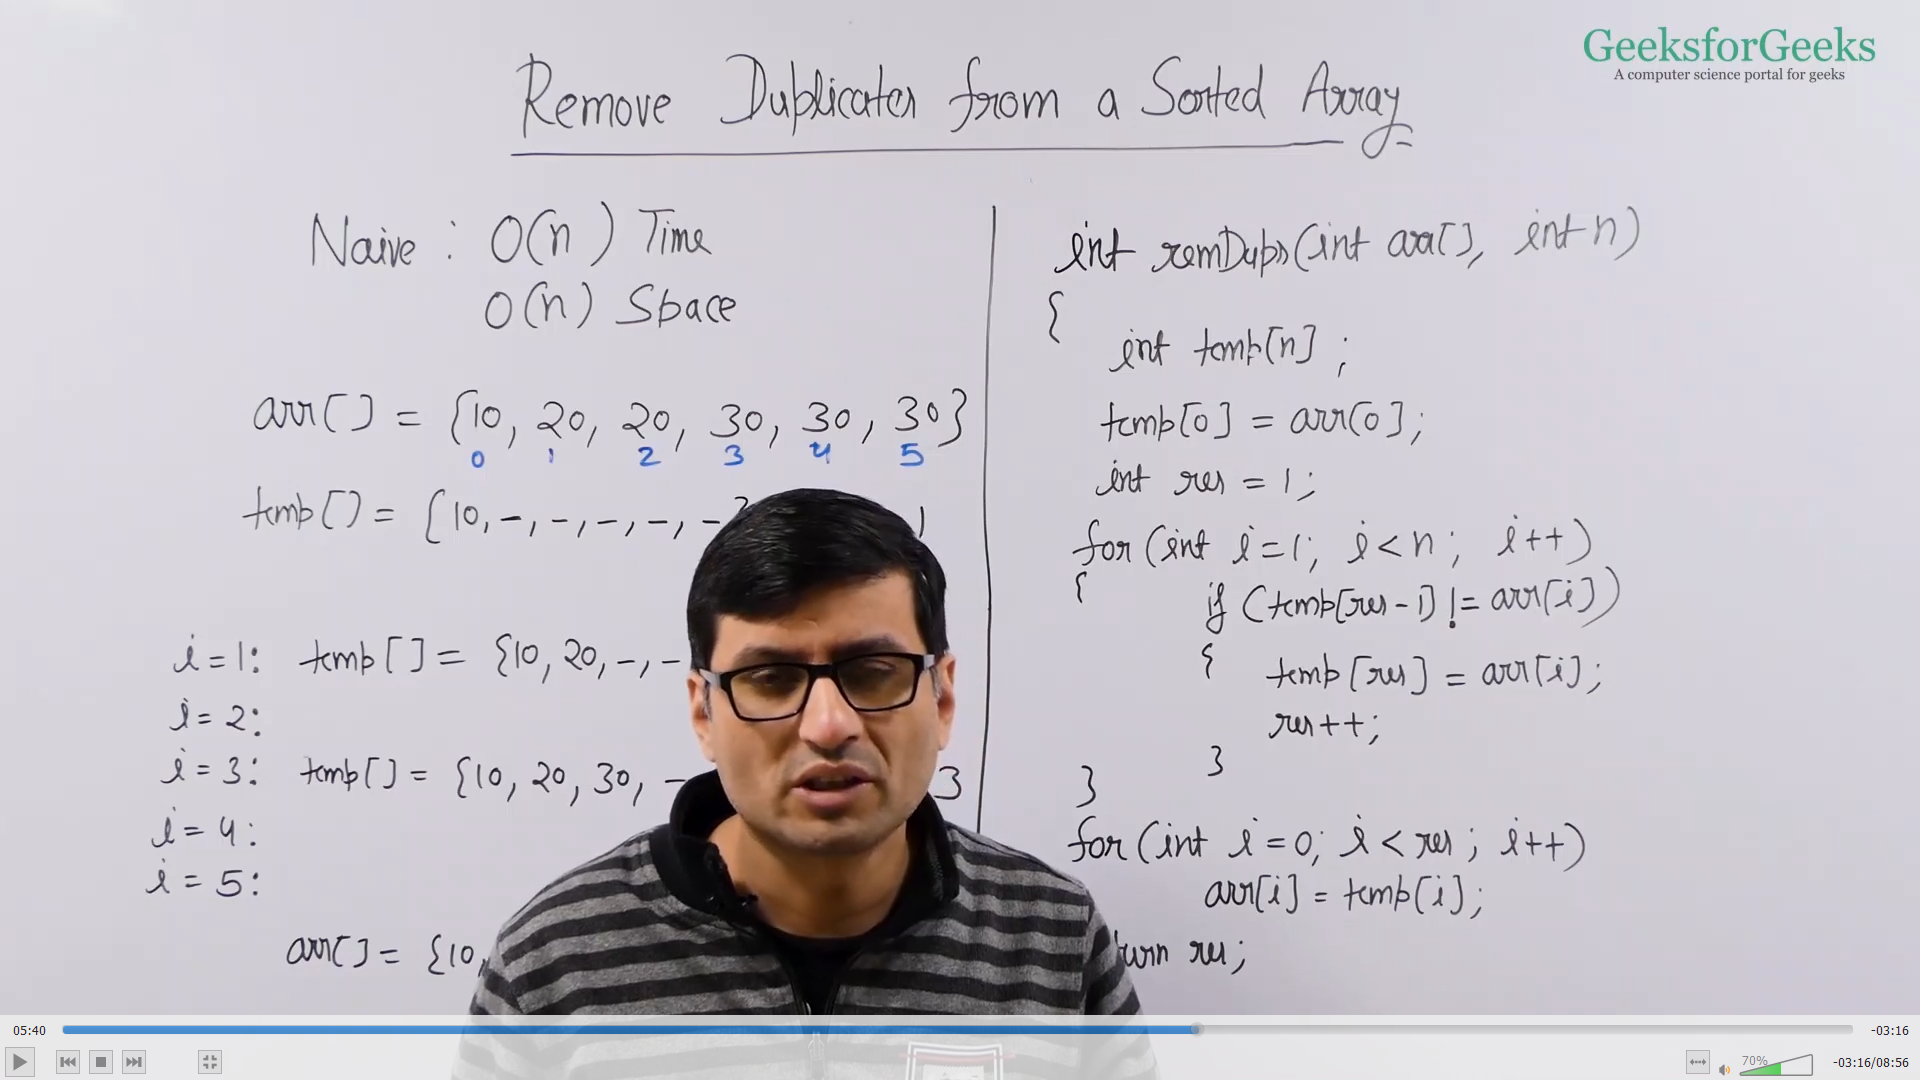 GeeksforGeeks
A computer science portal for geeks
Remove Duplicates from a Sorted Array
Naive : O(n) Time
O(n) Space
arr[] = {10, 20, 20, 30, 30, 30}
0 1 2 3 4 5
temp[] = {10, -, -, -, -, -
i=1: temp[] = {10, 20, -, -
i=2:
i=3: temp[] = {10, 20, 30, - 3
i=4:
i=5:
arr[] = {10,
int remDups(int arr[], int n)
{
int temp[n];
temp[0] = arr[0];
int res = 1;
for(int i=1; i<n; i++)
{
if (temp[res-1] != arr[i])
{
temp[res] = arr[i];
res++;
}
}
for(int i=0; i<res; i++)
arr[i] = temp[i];
turn res;
05:40
-03:16
70%
-03:16/08:56